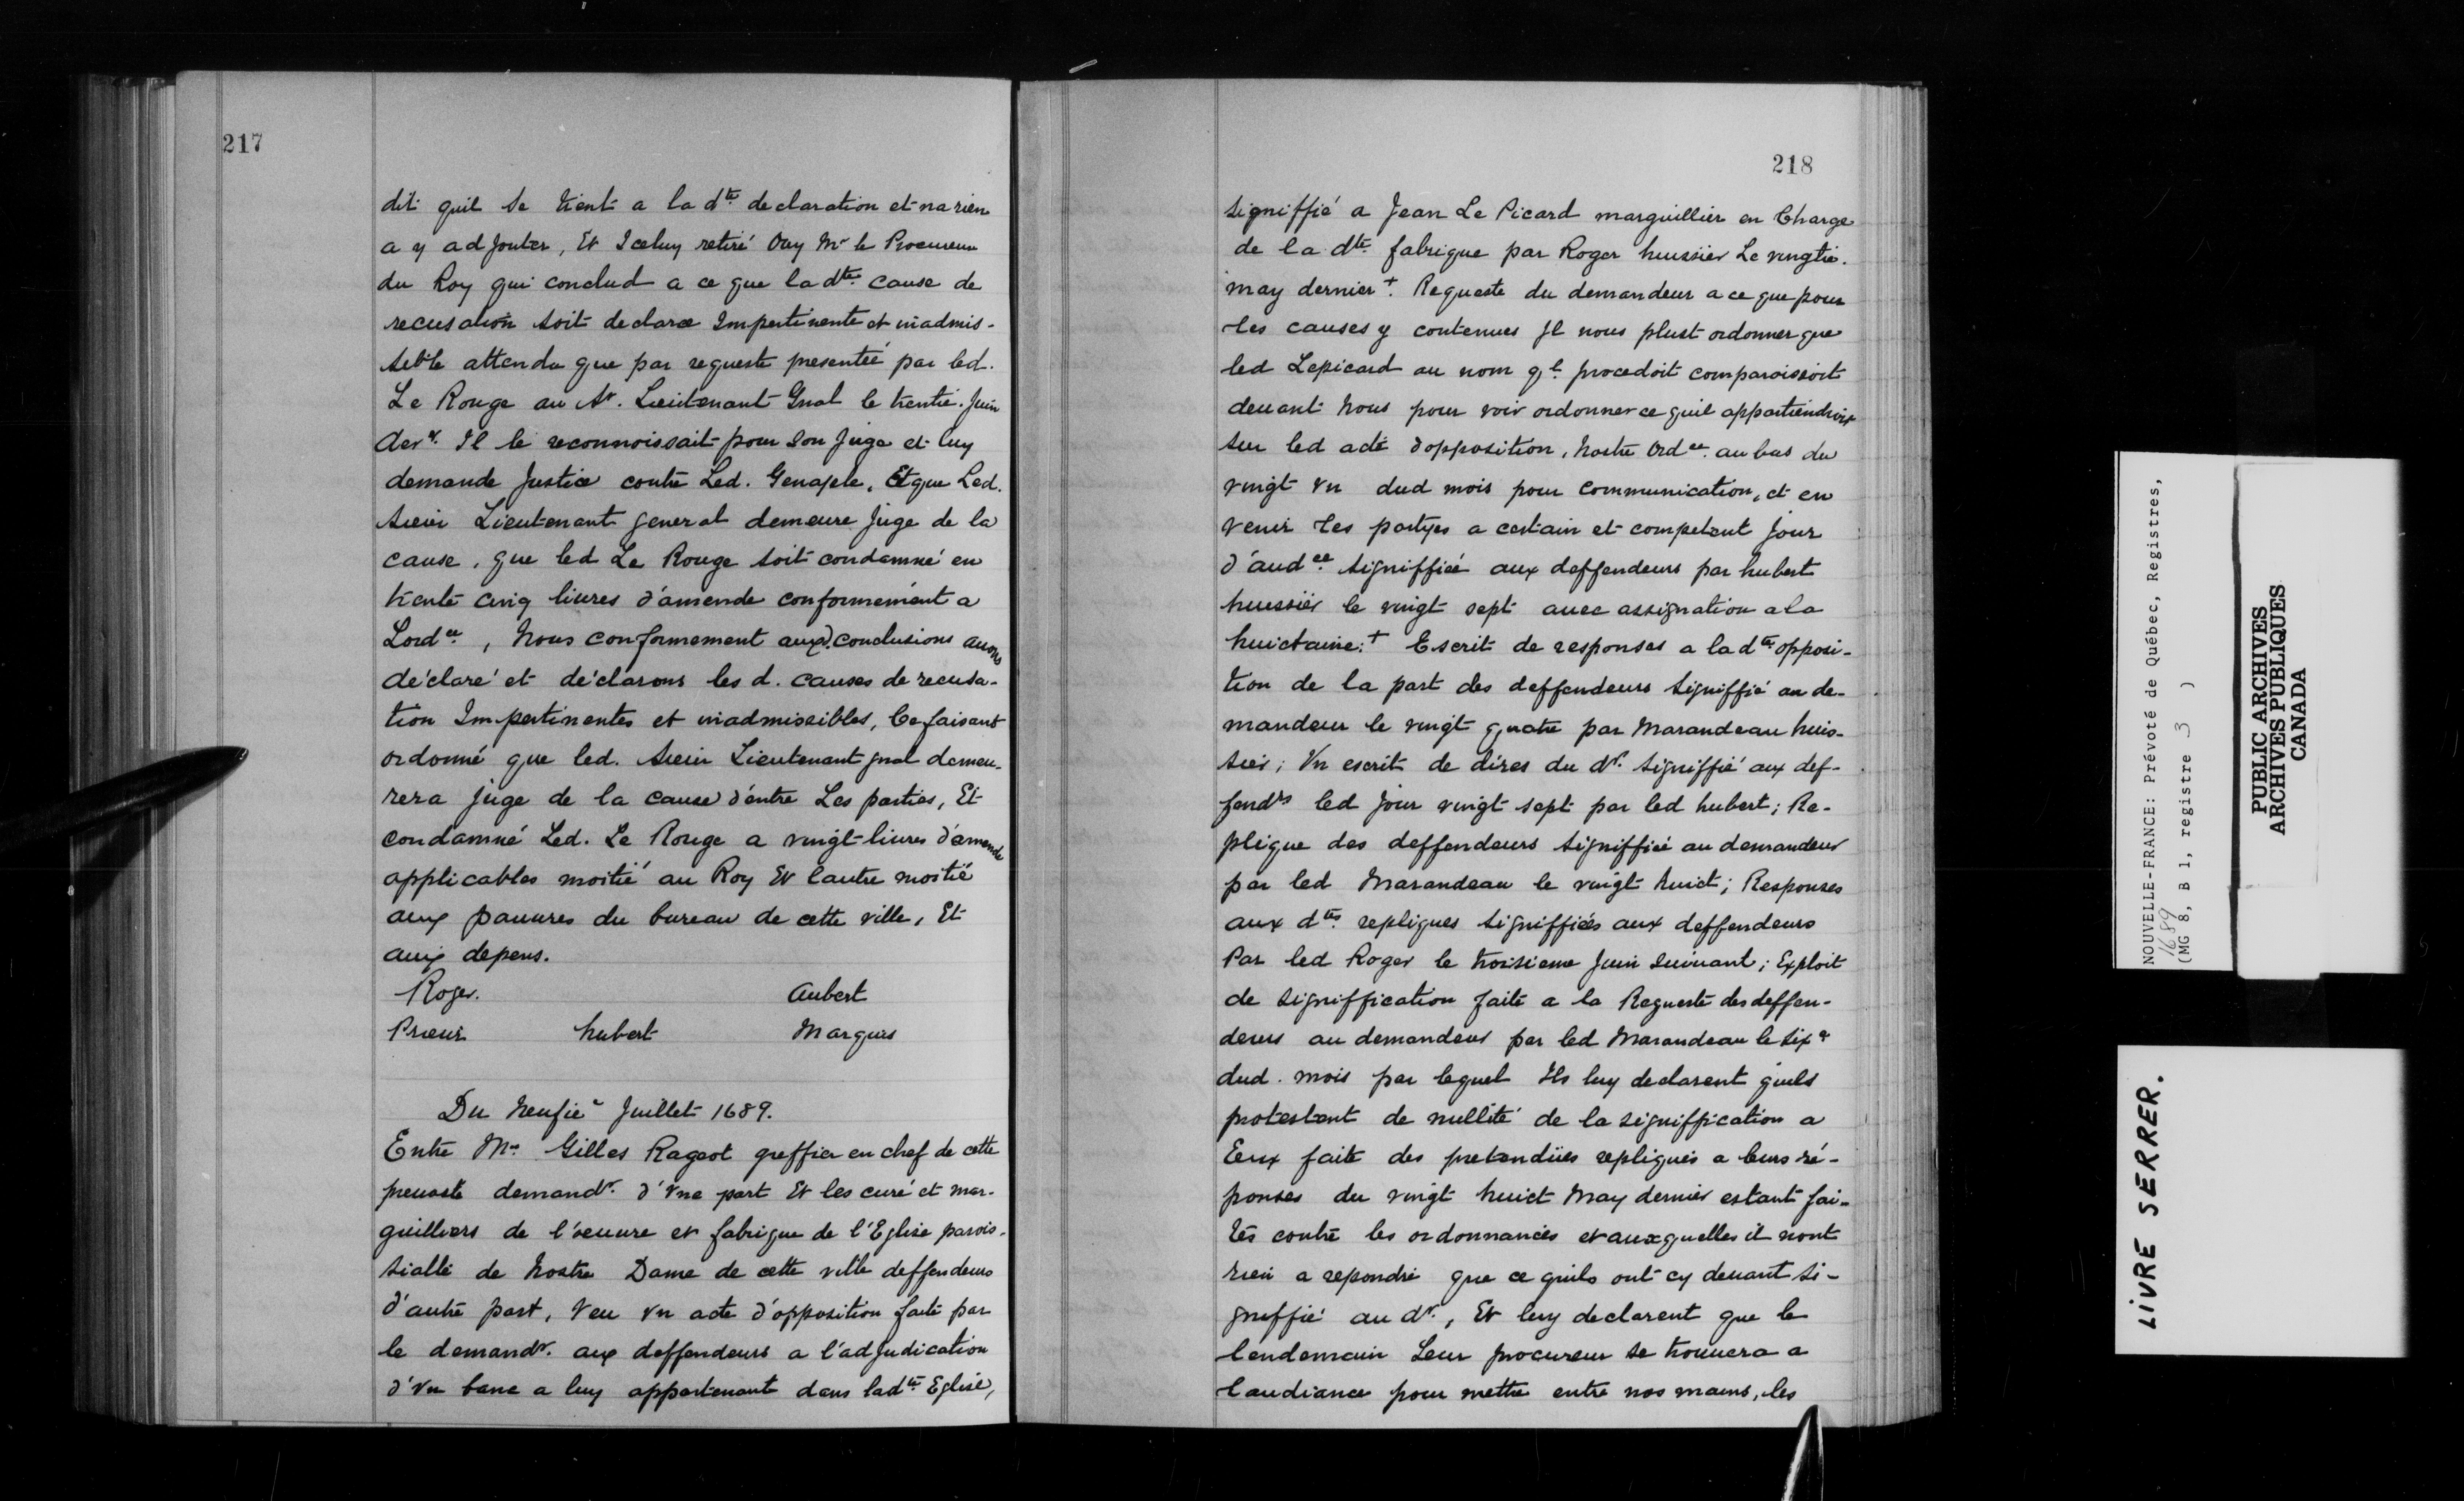 217
dit quil se tient a la dte declaration et na rien
a y adjouter, Et Iceluy retiré Ouy Mr le Procureur
du Roy qui conclud a ce que la dte cause de
recusation soit declaree Impertinente et inadmis-
sible attendu que par requeste presenteé par led.
Le Rouge au Sr. Lieutenant Gnal le trentie. Juin
der r. Il le reconnoissait pour son Juge et luy
demande Justice contre Led. Genaple, Et que Led.
Sieur Lieutenant general demeure Juge de la
cause, que led Le Rouge soit condamné en
trente cinq liures d'amende conformement a
Lordce, Nous conformement auxd. conclusions auons
déclaré et déclarons les d. causes de recusa-
tion Impertinentes et inadmissibles, Ce faisant
ordonné que led. Sieur Lieutenant gnal demeu-
rera Juge de la cause d'entre Les parties, Et
condamné Led. Le Rouge a vingt liures d'amende
applicables moitié au Roy Et lautre moitié
aux pauures du bureau de cette ville, Et
aux depens.
Roger. Aubert
Prieur hubert Marquis
Du Neufie Juillet 1689.
Entre Mre Gilles Rageot greffier en chef de cette
preuosté demandr. d'vne part Et les curé et mar-
guilliers de l'oeuure et fabrique de l'Eglise parois-
sialle de Nostre Dame de cette ville deffendeurs
d'autre part, Veu vn acte d'opposition faite par
le demandr. aux deffendeurs a l'adjudication
d'vn banc a luy appartenant dans ladte Eglise,
218
signiffié a Jean Le Picard marguillier en Charge
de la dte fabrique par Roger huissier Le vingtie.
may dernier +. Requeste du demandeur a ce que pour
les causes y contenues Jl nous plust ordonner que
led Lepicard au nom ql. procedoit comparoissoit
deuant Nous pour voir ordonner ce quil appartiendroit
sur led acte d'opposition, Nostre Ordce. au bas du
vingt vn dud mois pour communication, et en
venir les partyes a certain et competent Jour
d'audce signiffieé aux deffendeurs par hubert
huissier le vingt sept auec assignation a la
huictaine. + Escrit de responses a la dte opposi-
tion de la part des deffendeurs signiffié au de-
mandeur le vingt quatre par Marandeau huis-
sier; Vn escrit de dires du dr. signiffié aux def-
fendrs led Jour vingt sept par led hubert; Re-
plique des deffendeurs signiffieé au demandeur
par led Marandeau le vingt huict; Responses
aux dtes repliques signiffieés aux deffendeurs
Par led Roger le troisieme Juin suiuant; Exploit
de signiffication faite a la Requeste des deffen-
deurs au demandeur par led Marandeau le six e
dud. mois par lequel Ils luy declarent quils
protestent de nullité de la signiffication a
Eux faite des pretendües repliques a leurs ré-
ponses du vingt huict May dernier estant fai-
tes contre les ordonnances et auxquelles il nont
rien a repondre que ce quils ont cy deuant si-
gniffié au dr., Et luy declarent que le
lendemain Leur procureur se trouuera a
laudiance pour mettre entre nos mains, les
NOUVELLE-FRANCE: Prévoté de Québec, Registres,
1689
(MG 8, B 1, registre 3 )
PUBLIC ARCHIVES
ARCHIVES PUBLIQUES
CANADA
LIVRE SERRER.